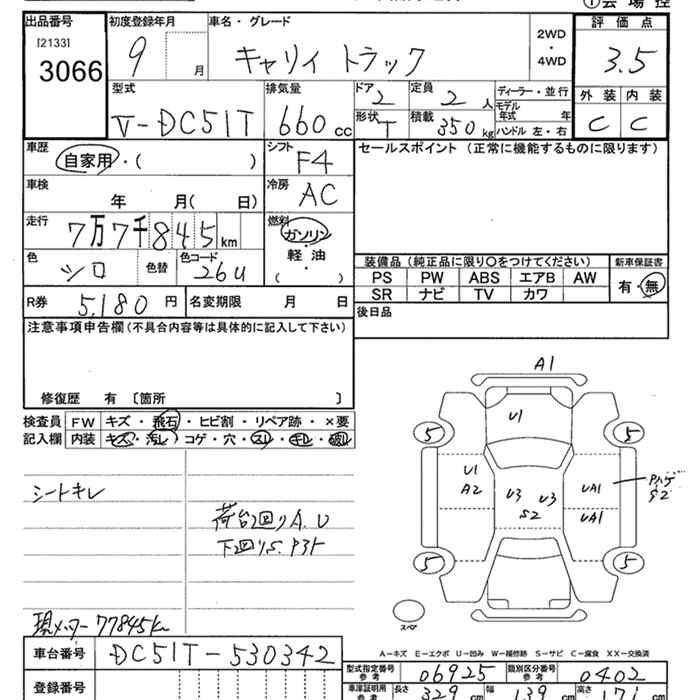 出品番号 初度登録年月 車名・グレード 2WD・4WD 評価点
[2133] 3066 9 月 キャリィ トラック 3.5
型式 排気量 ドア 2 定員 2 人 ディーラー・並行 外装 内装
V-DC51T 660 cc 形状 T 積載 350 kg モデル年式 年 ハンドル 左・右 C C
車歴 自家用・( ) シフト F4 セールスポイント (正常に機能するものに限ります)
車検 年 月( 日) 冷房 AC
走行 7万7千845km 燃料 ガソリン・軽油・( )
色 シロ 色替 色コード 26U 装備品 (純正品に限り○をつけてください) 新車保証書
PS PW ABS エアB AW 有・無
SR ナビ TV カワ
R券 5,180 円 名変期限 月 日 後日品
注意事項申告欄 (不具合内容等は具体的に記入して下さい)
修復歴 有 〔箇所 〕
検査員記入欄 FW キズ・飛石・ヒビ割・リペア跡・×要
内装 キズ・汚レ・コゲ・穴・スレ・キレ・破レ
シートキレ
荷台2回りA.U
下回りS.P3ト
現メーター77845km
A1
U1
5 5
U1 A2 U3 U3 S2 UA1 UA1 Pハゲ S2
5 5
スペア
A-キズ E-エクボ U-凹み W-補修跡 S-サビ C-腐食 XX-交換済
車台番号 DC51T-530342
型式指定番号 参考 06925 類別区分番号 参考 0402
登録番号 車庫証明用 参考 長さ 329 cm 幅 139 cm 高さ 171 cm